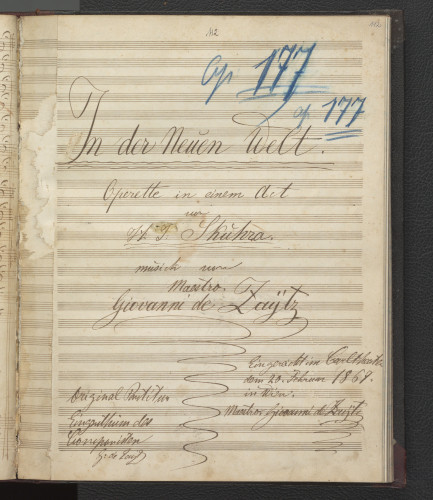 112
Op 177
op 177
In der Neuen Welt.
Operette in einem Act
von
T. Skuhra.
musick von
Maestro.
Giovanni de Zaÿtz
Carltheater
dem 20. Februar 1867.
in Wien.
Maestro Giovanni de Zaÿtz
Original Partitur
Eigenthum des
Componisten